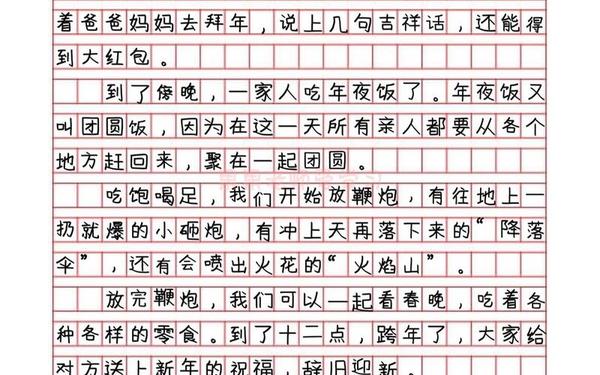 着爸爸妈妈去拜年，说上几句吉祥话，还能得
到大红包。
到了傍晚，一家人吃年夜饭了。年夜饭又
叫团圆饭，因为在这一天所有亲人都要从各个
地方赶回来，聚在一起团圆。
吃饱喝足，我们开始放鞭炮，有往地上一
扔就爆的小砸炮，有冲上天再落下来的“降落
伞”，还有会喷出火花的“火焰山”。
放完鞭炮，我们可以一起看春晚，吃着各
种各样的零食。到了十二点，跨年了，大家给
对方送上新年的祝福，辞旧迎新。